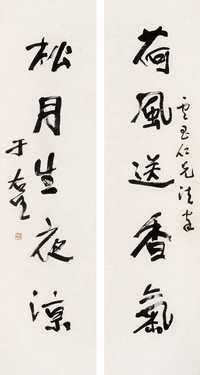 荷風送香氣
仁兄法
松月生夜涼
于右任